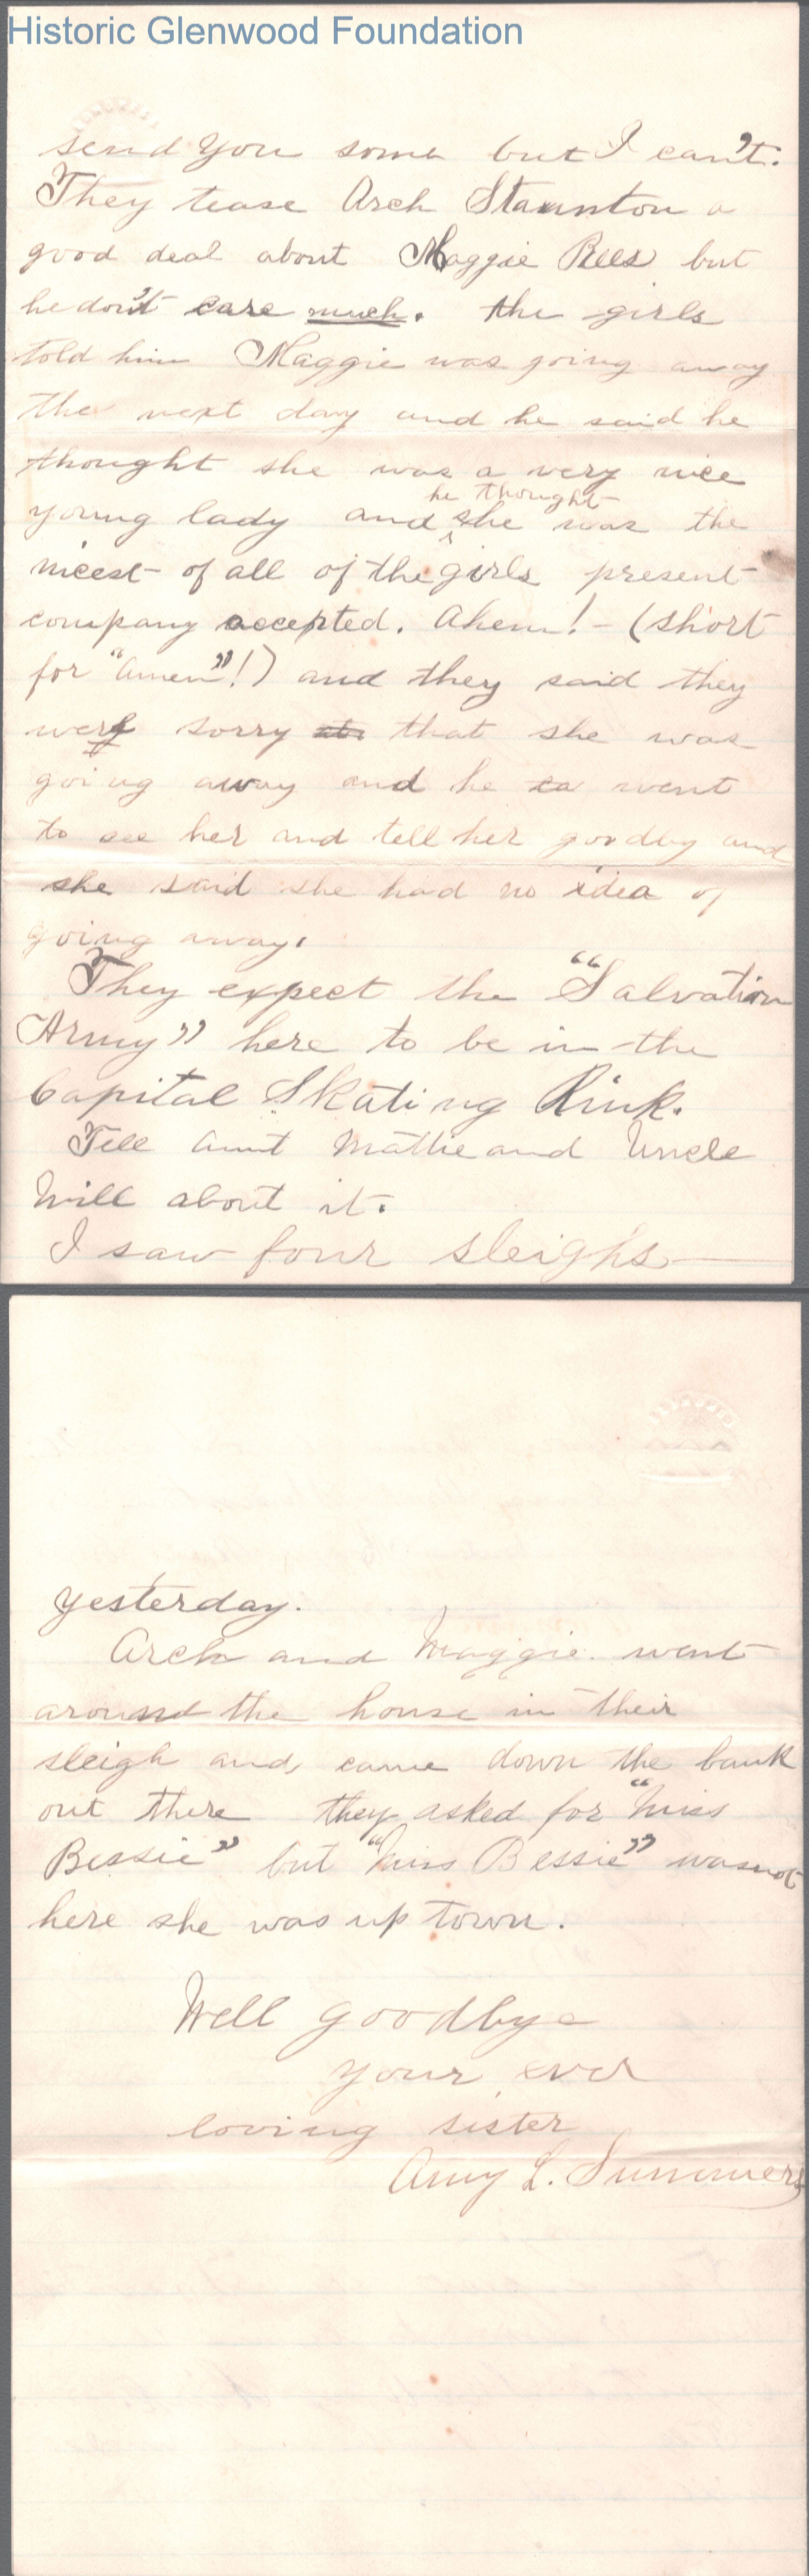 Historic Glenwood Foundation
send you some but I can't.
They tease Arch Staunton a
good deal about Maggie Rees but
he don't care much. the girls
told him Maggie was going away
the next day and he said he
thought she was a very nice
he thought
young lady and she was the
nicest of all of the girls present
company accepted. Ahem! - (short
for "Amen"!) and they said they
were sorry that she was
going away and he went
to see her and tell her goodby and
she said she had no idea of
going away.
They expect the "Salvation
Army" here to be in the
Capital Skating Rink.
Tell Aunt Mattie and Uncle
Will about it.
I saw four sleighs
yesterday.
Arch and Maggie went
around the house in their
sleigh and came down the bank
out there they asked for "Miss
Bessie" but "Miss Bessie" was not
here she was up town.
Well goodbye
your ever
loving sister
Amy L. Summers